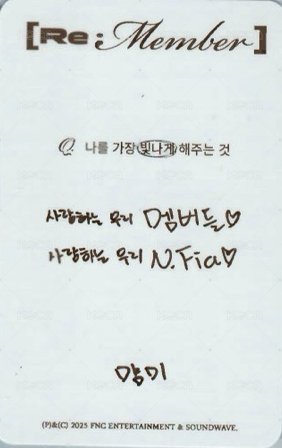 [Re:Member]
Q. 나를 가장 빛나게 해주는 것
사랑하는 우리 멤버들♡
사랑하는 우리 N.Fia♡
(P)&(C) 2025 FNC ENTERTAINMENT & SOUNDWAVE.